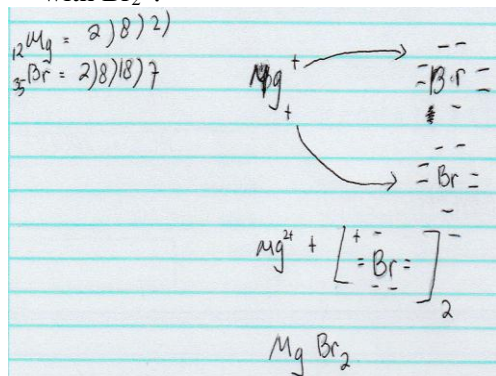 with Br₂ .
₁₂Mg = 2)8)2)
₃₅Br = 2)8)18)7
Mg
Br
Br
Mg²⁺ + [Br]⁻₂
Mg Br₂